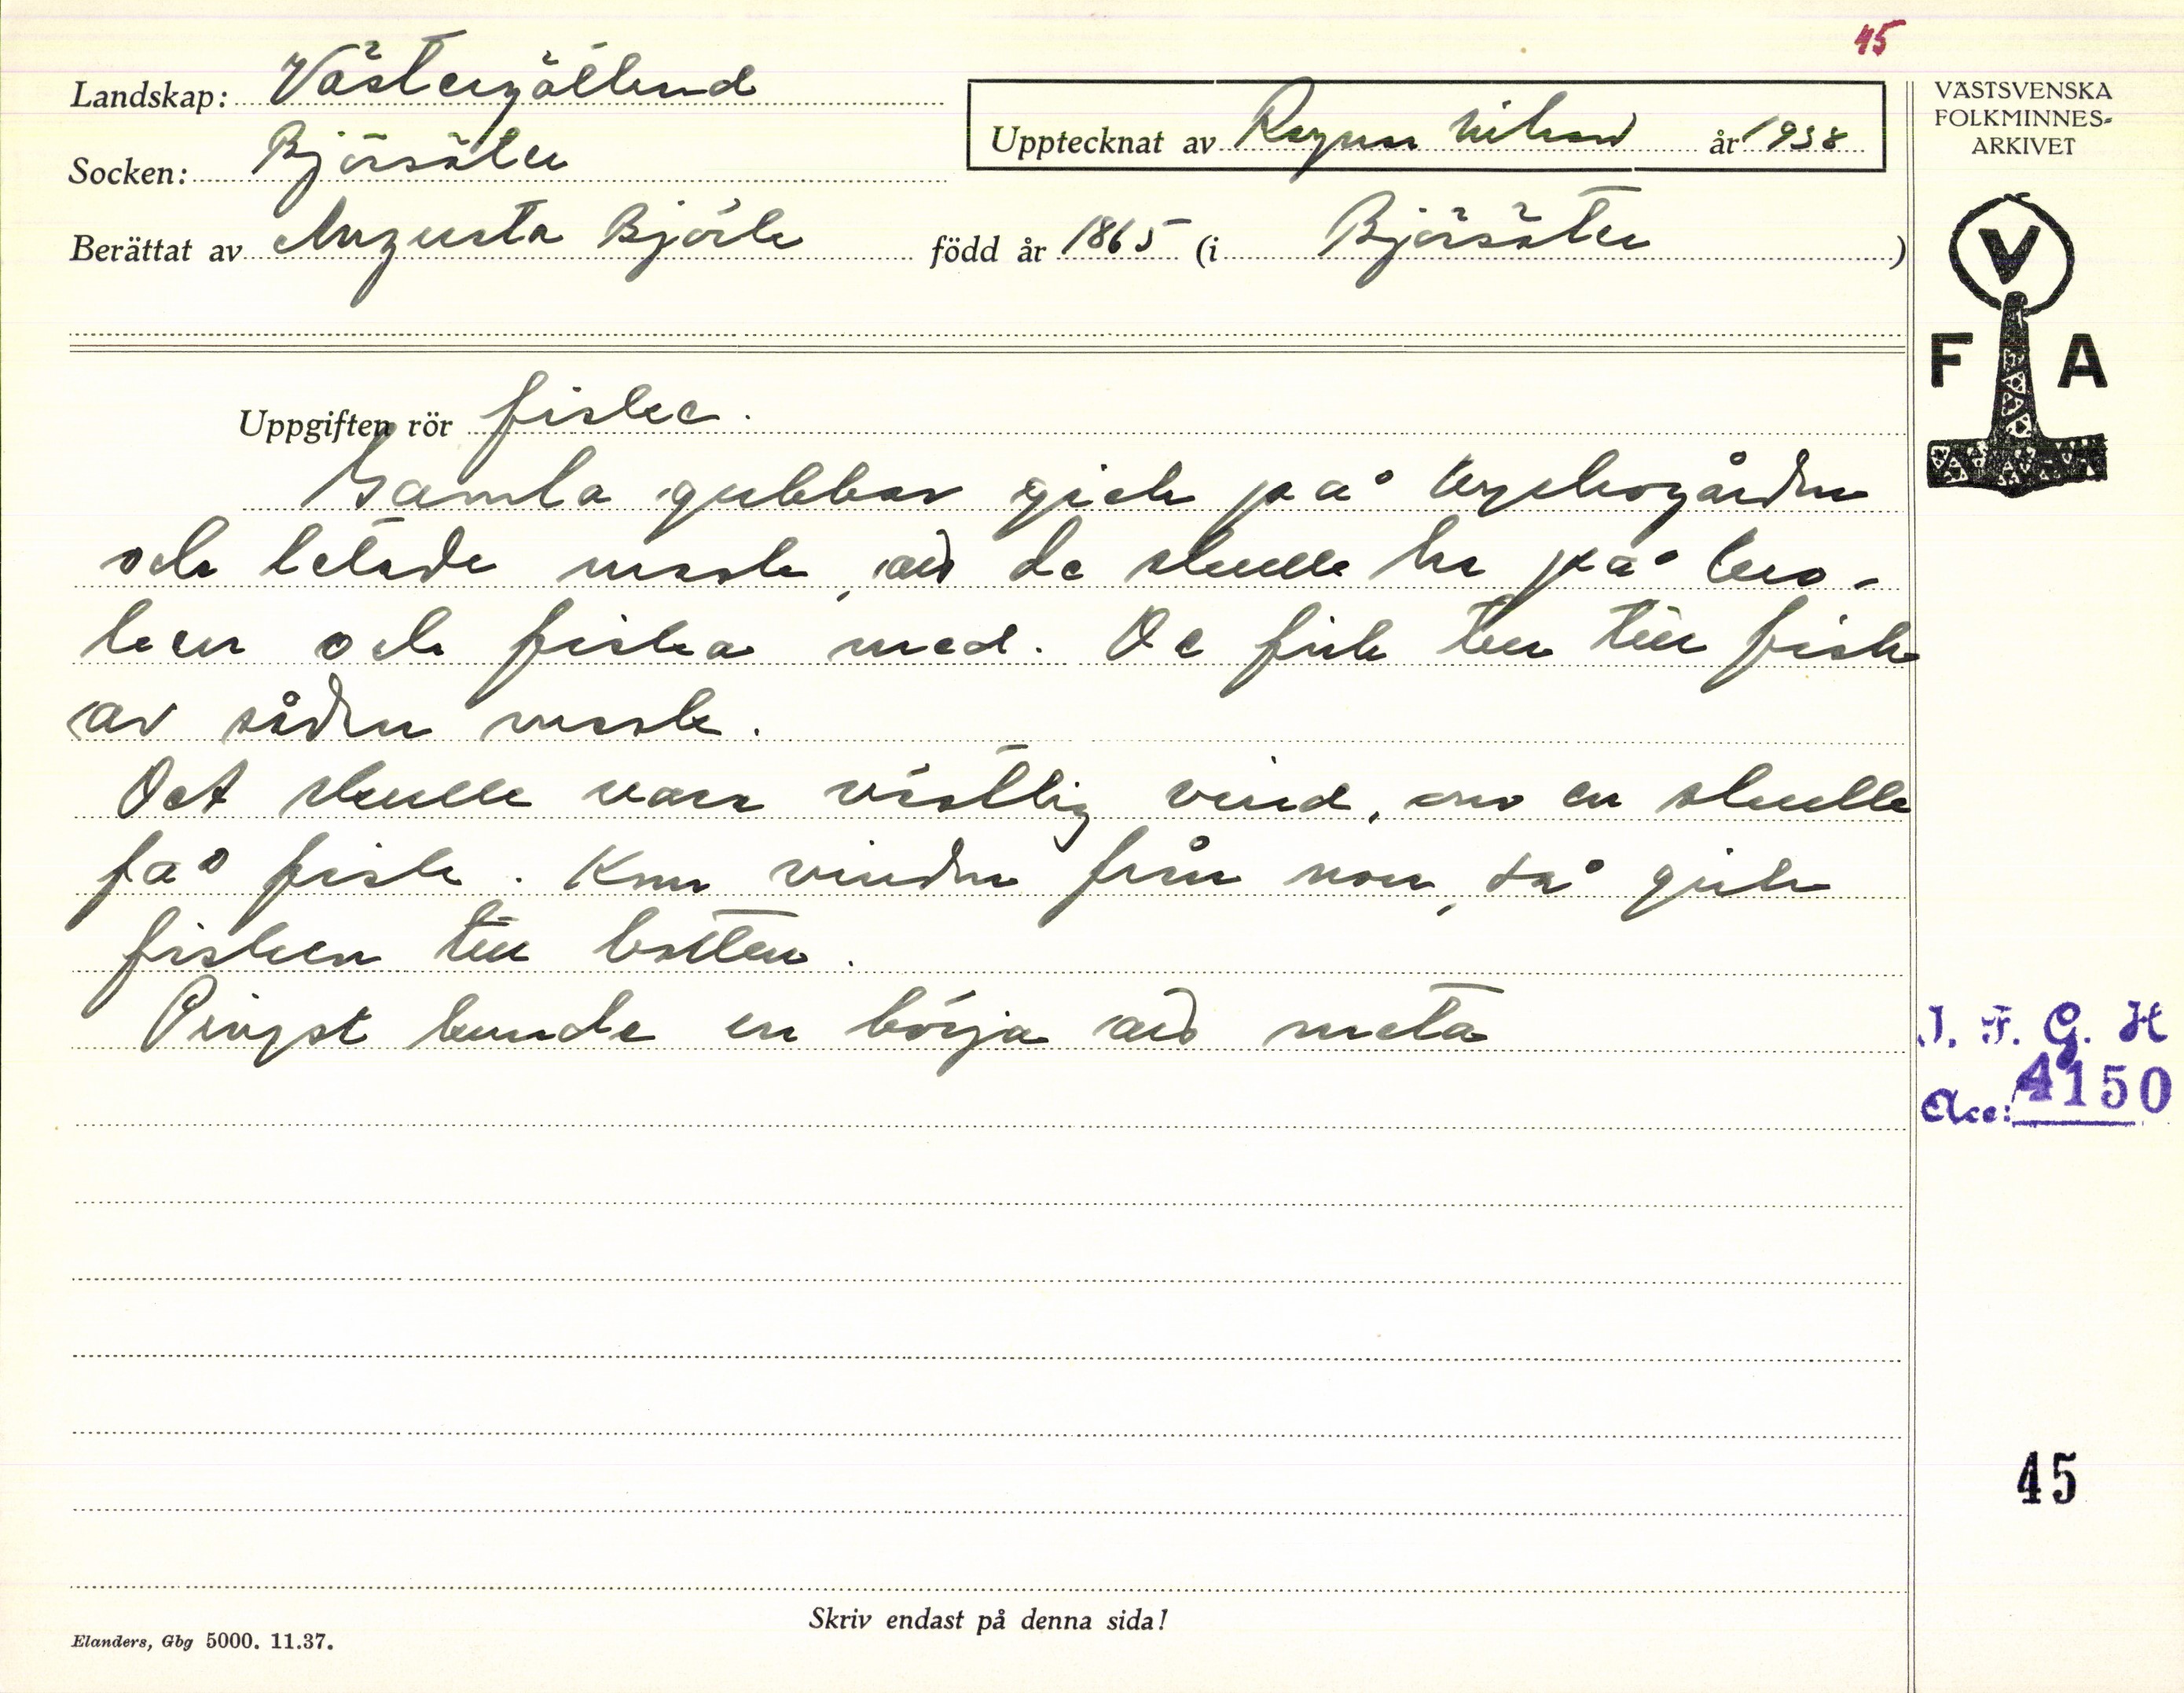 45
Landskap: Västergötland
Upptecknat av Ragnar Nilsson år 1938
Socken: Björsäter
Berättat av Augusta Björk född år 1865 (i Björsäter)
VÄSTSVENSKA
FOLKMINNES-
ARKIVET
V
F A
Uppgiften rör fiske.
Gamla gubbar gick på kyrkogården
och letade mask, som de skulle ha på kro-
ken och fiska med. De fick till fisk
av sådan mask.
Det skulle vara västlig vind, om en skulle
få fisk. Kom vinden från norr, så gick
fisken till botten.
Pingst kunde en börja att meta
I. F. G. H
Acc: 4150
45
Skriv endast på denna sida!
Elanders, Gbg 5000. 11.37.